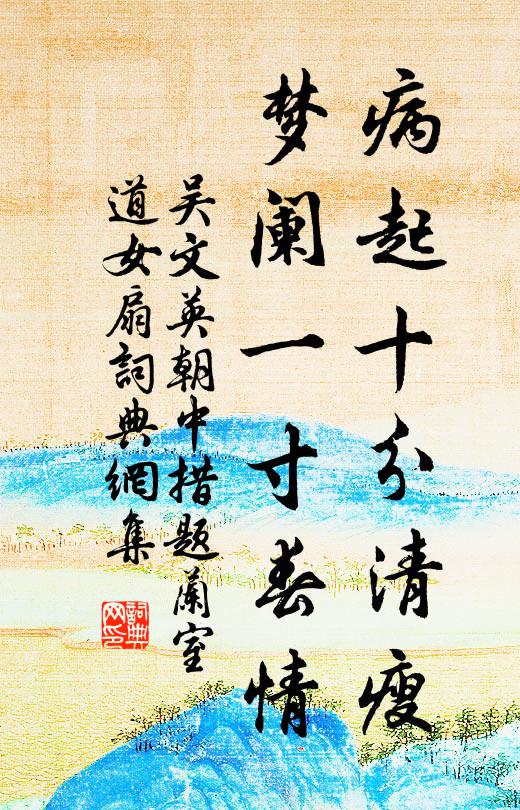 病起十分清瘦
梦阑一寸春情
吴文英朝中措题蘭室
道女扇詞典網集
詞典网印